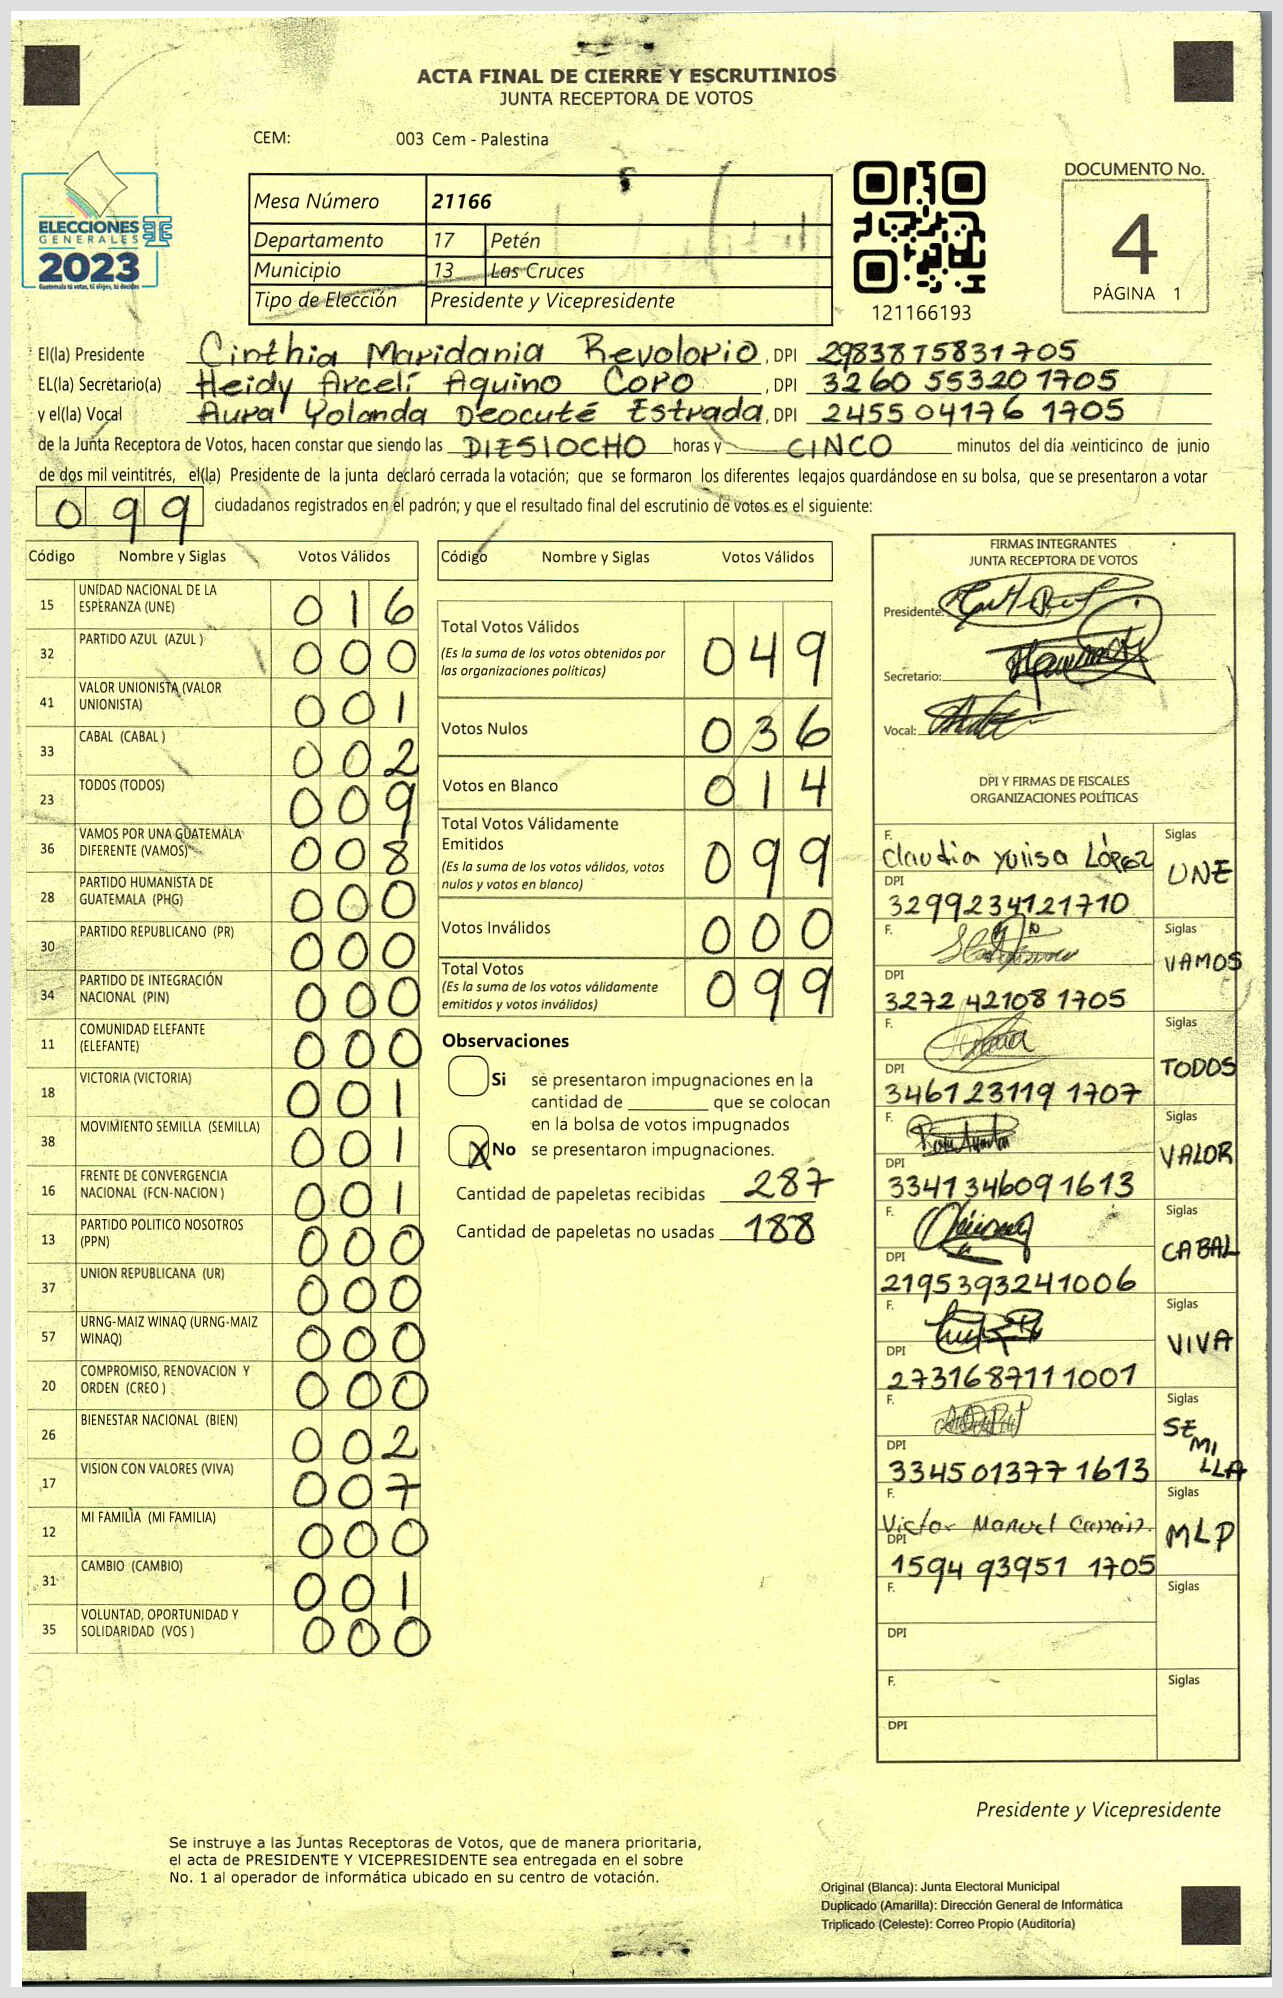 ACTA FINAL DE CIERRE Y ESCRUTINIOS
JUNTA RECEPTORA DE VOTOS
CEM: 003 Cem - Palestina
ELECCIONES
GENERALES
2023
Guatemala tú votas, tú eliges, tú decides
Mesa Número 21166
Departamento 17 Petén
Municipio 13 Las Cruces
Tipo de Elección Presidente y Vicepresidente
121166193
DOCUMENTO No.
4
PÁGINA 1
El(la) Presidente Cinthia Maridania Revolorio, DPI 2983875831705
EL(la) Secretario(a) Heidy Arcelí Aquino Coro, DPI 3260 55320 1705
y el(la) Vocal Aura Yolanda Deocuté Estrada, DPI 2455 04176 1705
de la Junta Receptora de Votos, hacen constar que siendo las DIESIOCHO horas y CINCO minutos del día veinticinco de junio
de dos mil veintitrés, el(la) Presidente de la junta declaró cerrada la votación; que se formaron los diferentes legajos guardándose en su bolsa, que se presentaron a votar
099 ciudadanos registrados en el padrón; y que el resultado final del escrutinio de votos es el siguiente:
Código Nombre y Siglas Votos Válidos
15 UNIDAD NACIONAL DE LA ESPERANZA (UNE) 016
32 PARTIDO AZUL (AZUL ) 000
41 VALOR UNIONISTA (VALOR UNIONISTA) 001
33 CABAL (CABAL ) 002
23 TODOS (TODOS) 009
36 VAMOS POR UNA GUATEMALA DIFERENTE (VAMOS) 008
28 PARTIDO HUMANISTA DE GUATEMALA (PHG) 000
30 PARTIDO REPUBLICANO (PR) 000
34 PARTIDO DE INTEGRACIÓN NACIONAL (PIN) 000
11 COMUNIDAD ELEFANTE (ELEFANTE) 000
18 VICTORIA (VICTORIA) 001
38 MOVIMIENTO SEMILLA (SEMILLA) 001
16 FRENTE DE CONVERGENCIA NACIONAL (FCN-NACION ) 001
13 PARTIDO POLITICO NOSOTROS (PPN) 000
37 UNION REPUBLICANA (UR) 000
57 URNG-MAIZ WINAQ (URNG-MAIZ WINAQ) 000
20 COMPROMISO, RENOVACION Y ORDEN (CREO ) 000
26 BIENESTAR NACIONAL (BIEN) 002
17 VISION CON VALORES (VIVA) 007
12 MI FAMILIA (MI FAMILIA) 000
31 CAMBIO (CAMBIO) 001
35 VOLUNTAD, OPORTUNIDAD Y SOLIDARIDAD (VOS ) 000
Código Nombre y Siglas Votos Válidos
Total Votos Válidos 049
(Es la suma de los votos obtenidos por
las organizaciones políticas)
Votos Nulos 036
Votos en Blanco 014
Total Votos Válidamente
Emitidos 099
(Es la suma de los votos válidos, votos
nulos y votos en blanco)
Votos Inválidos 000
Total Votos 099
(Es la suma de los votos válidamente
emitidos y votos inválidos)
Observaciones
Si se presentaron impugnaciones en la
cantidad de ________ que se colocan
en la bolsa de votos impugnados
X No se presentaron impugnaciones.
Cantidad de papeletas recibidas 287
Cantidad de papeletas no usadas 188
FIRMAS INTEGRANTES
JUNTA RECEPTORA DE VOTOS
Presidente:
Secretario:
Vocal:
DPI Y FIRMAS DE FISCALES
ORGANIZACIONES POLÍTICAS
F. Claudia Yulisa López Siglas UNE
DPI 3299234121710
F. Siglas VAMOS
DPI 3272 42108 1705
F. Siglas TODOS
DPI 346123119 1707
F. Siglas VALOR
DPI 3341346091613
F. Siglas CABAL
DPI 2195393241006
F. Siglas VIVA
DPI 2731687111001
F. Siglas SEMILLA
DPI 334501377 1613
F. Victor Manuel Siglas MLP
DPI 1594 93951 1705
F. Siglas
DPI
F. Siglas
DPI
Presidente y Vicepresidente
Se instruye a las Juntas Receptoras de Votos, que de manera prioritaria,
el acta de PRESIDENTE Y VICEPRESIDENTE sea entregada en el sobre
No. 1 al operador de informática ubicado en su centro de votación.
Original (Blanca): Junta Electoral Municipal
Duplicado (Amarilla): Dirección General de Informática
Triplicado (Celeste): Correo Propio (Auditoría)